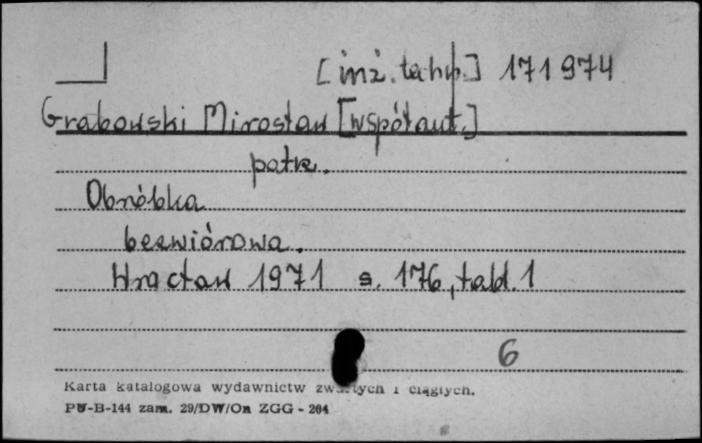 [inż. techn.] 171974
Grabowski Mirosław [współaut.]
patrz.
Obróbka
bezwiórowa.
Wrocław 1971 s. 176, tabl. 1
6
Karta katalogowa wydawnictw zwartych i ciągłych.
PU-B-144 zam. 29/DW/On ZGG - 204